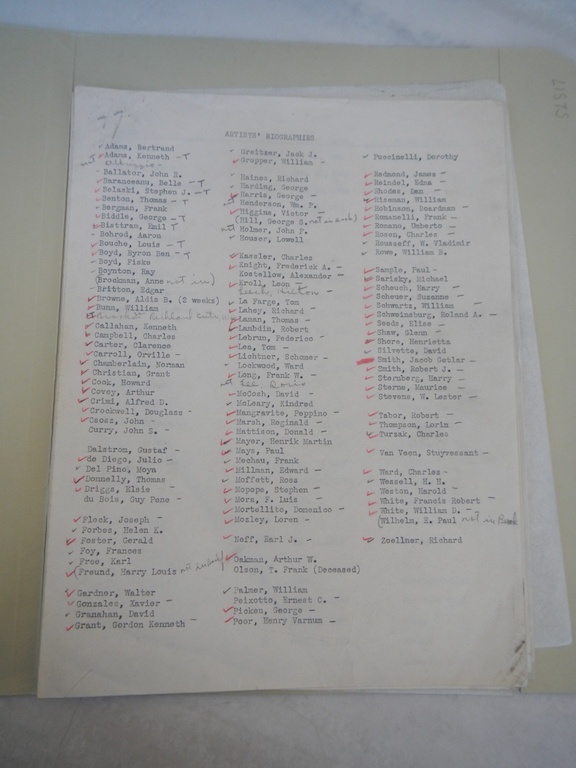 77
ARTISTS' BIOGRAPHIES
Adams, Bertrand
Adams, Kenneth - T
Ballator, John R.
Baranceanu, Belle - T
Belaski, Stephen J. - T
Benton, Thomas - T
Bergman, Frank
Biddle, George - T
Bisttram, Emil T
Bohrod, Aaron
Bouche, Louis - T
Boyd, Byron Ben - T
Boyd, Fiske
Boynton, Ray
(Brockman, Anne not in)
Britton, Edgar
Browne, Aldis B. (2 weeks)
Bunn, William
Callahan, Kenneth
Campbell, Charles
Carter, Clarence
Carroll, Orville -
Chamberlain, Norman
Christian, Grant
Cook, Howard
Covey, Arthur
Crimi, Alfred D.
Crockwell, Douglass -
Csosz, John -
Curry, John S. -
Dalstrom, Gustaf -
de Diego, Julio -
Del Pino, Moya
Donnelly, Thomas
Driggs, Elsie -
du Bois, Guy Pene -
Fleck, Joseph -
Forbes, Helen K.
Foster, Gerald
Foy, Frances
Free, Karl
(Freund, Harry Louis
Gardner, Walter
Gonzales, Xavier -
Granahan, David
Grant, Gordon Kenneth -
Greitzer, Jack J.
Gropper, William -
Haines, Richard
Harding, George
Harris, George -
Henderson, Wm. P.
Higgins, Victor -
(Hill, George S. not in book)
Holmer, John F.
Houser, Lowell
Kassler, Charles
Knight, Frederick A. -
Kostellow, Alexander -
Kroll, Leon -
La Farge, Tom
Lahey, Richard
Laman, Thomas -
Lambdin, Robert
Lebrun, Federico -
Lea, Tom -
Lichtner, Schomer -
Lockwood, Ward
Long, Frank W. -
Lee Doris
McCosh, David -
McLeary, Kindred
Mangravite, Peppino -
Marsh, Reginald
Mattison, Donald -
Mayer, Henrik Martin
Mays, Paul
Mechau, Frank
Millman, Edward -
Moffett, Ross
Mopope, Stephen -
Mora, F. Luis
Mortellito, Domenico -
Mozley, Loren -
Naff, Earl J. -
Oakman, Arthur W.
Olson, T. Frank (Deceased)
Palmer, William
Peixotto, Ernest C. -
Picken, George -
Poor, Henry Varnum -
Puccinelli, Dorothy
Redmond, James -
Reindel, Edna -
Rhodes, Dan -
Riseman, William
Robinson, Boardman -
Romanelli, Frank -
Romano, Umberto -
Rosen, Charles -
Rousseff, W. Vladimir
Rowe, William B.
Sample, Paul -
Sarisky, Michael
Scheuch, Harry -
Scheuer, Suzanne -
Schwartz, William -
Schweinsburg, Roland A. -
Seeds, Elise -
Shaw, Glenn -
Shore, Henrietta
Silvette, David
Smith, Jacob Getlar -
Smith, Robert J. -
Sternberg, Harry -
Sterne, Maurice -
Stevens, W. Lester -
Tabor, Robert -
Thompson, Lorin -
Turzak, Charles
Van Veen, Stuyvessant -
Ward, Charles -
Wessell, H. H.
Weston, Harold -
White, Francis Robert -
White, William D. -
(Wilhelm, E. Paul not in Book
Zoellner, Richard